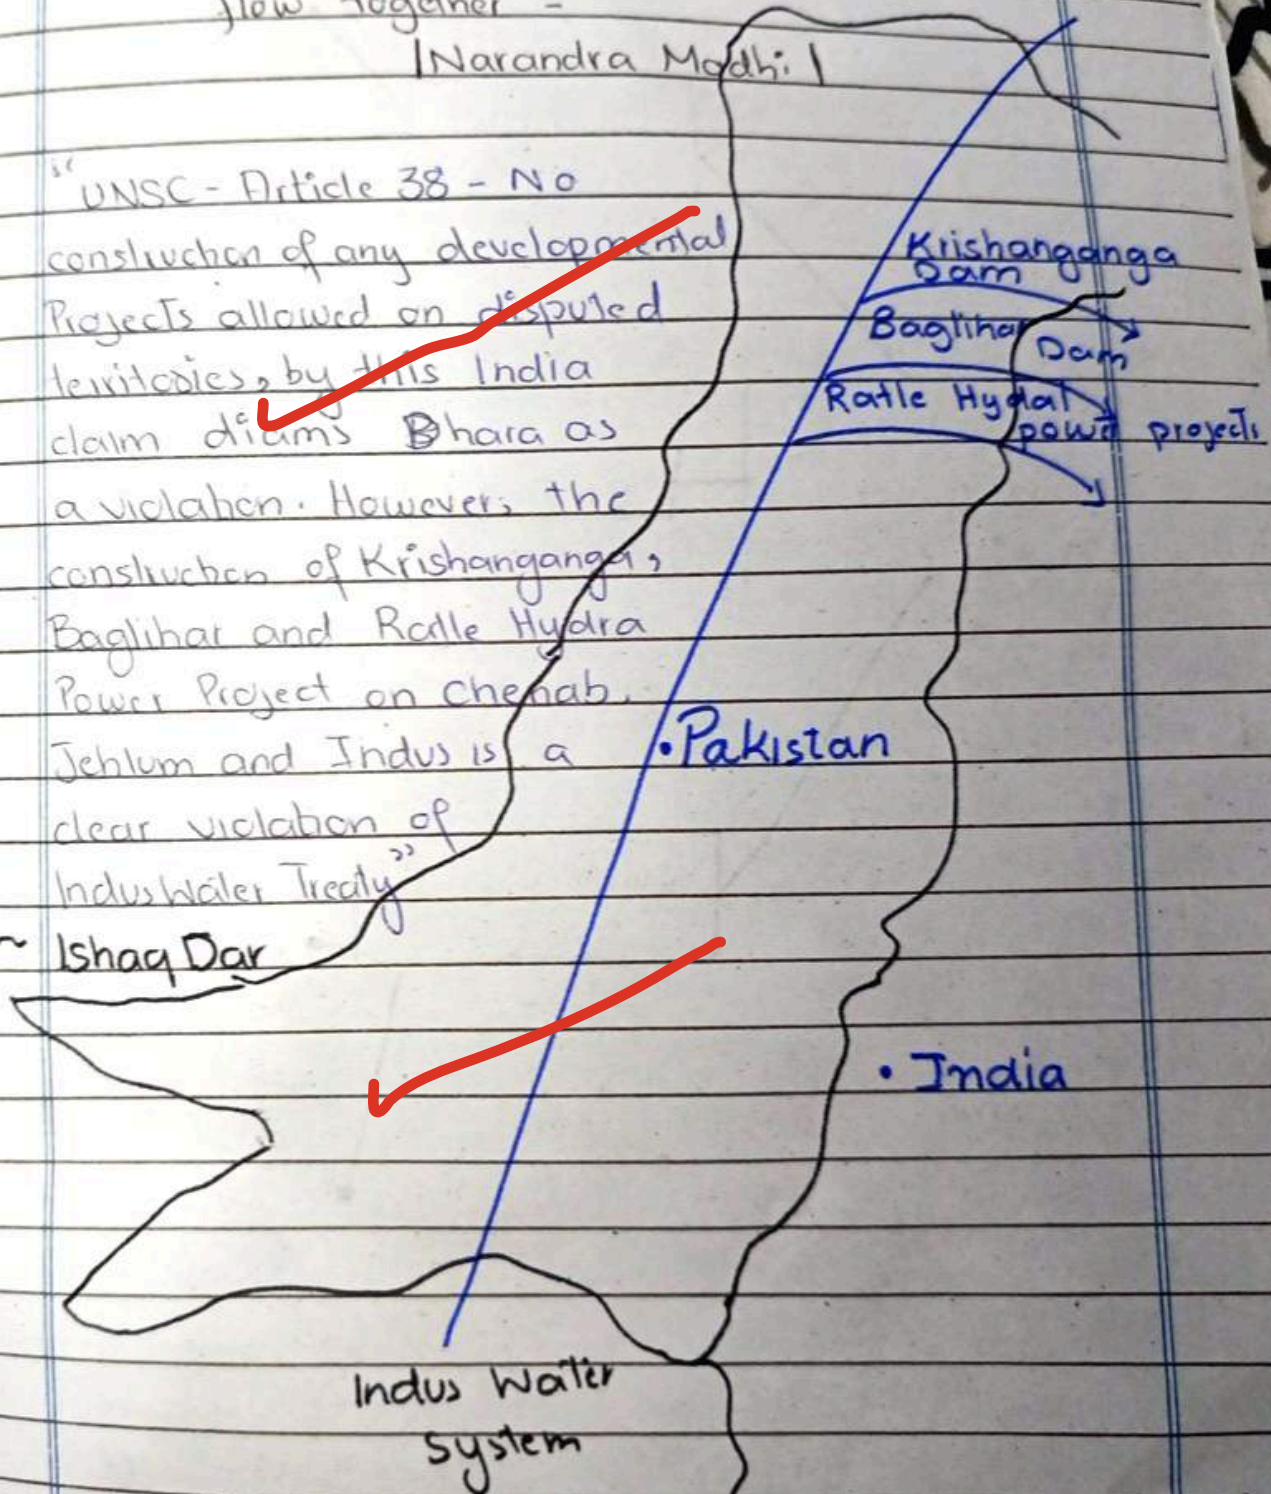 flow together -
|Narandra Modhi|
"UNSC - Article 38 - No
construction of any developmental
Projects allowed on disputed
territories, by this India
claim diams Bhara as
a violation. However, the
construction of Krishanganga,
Baglihar and Ratle Hydra
Power Project on Chenab,
Jehlum and Indus is a
clear violation of
Indus Water Treaty"
~ Ishaq Dar
Krishanganga
Dam
Baglihar Dam
Ratle Hydal
power projects
• Pakistan
• India
Indus Water
System